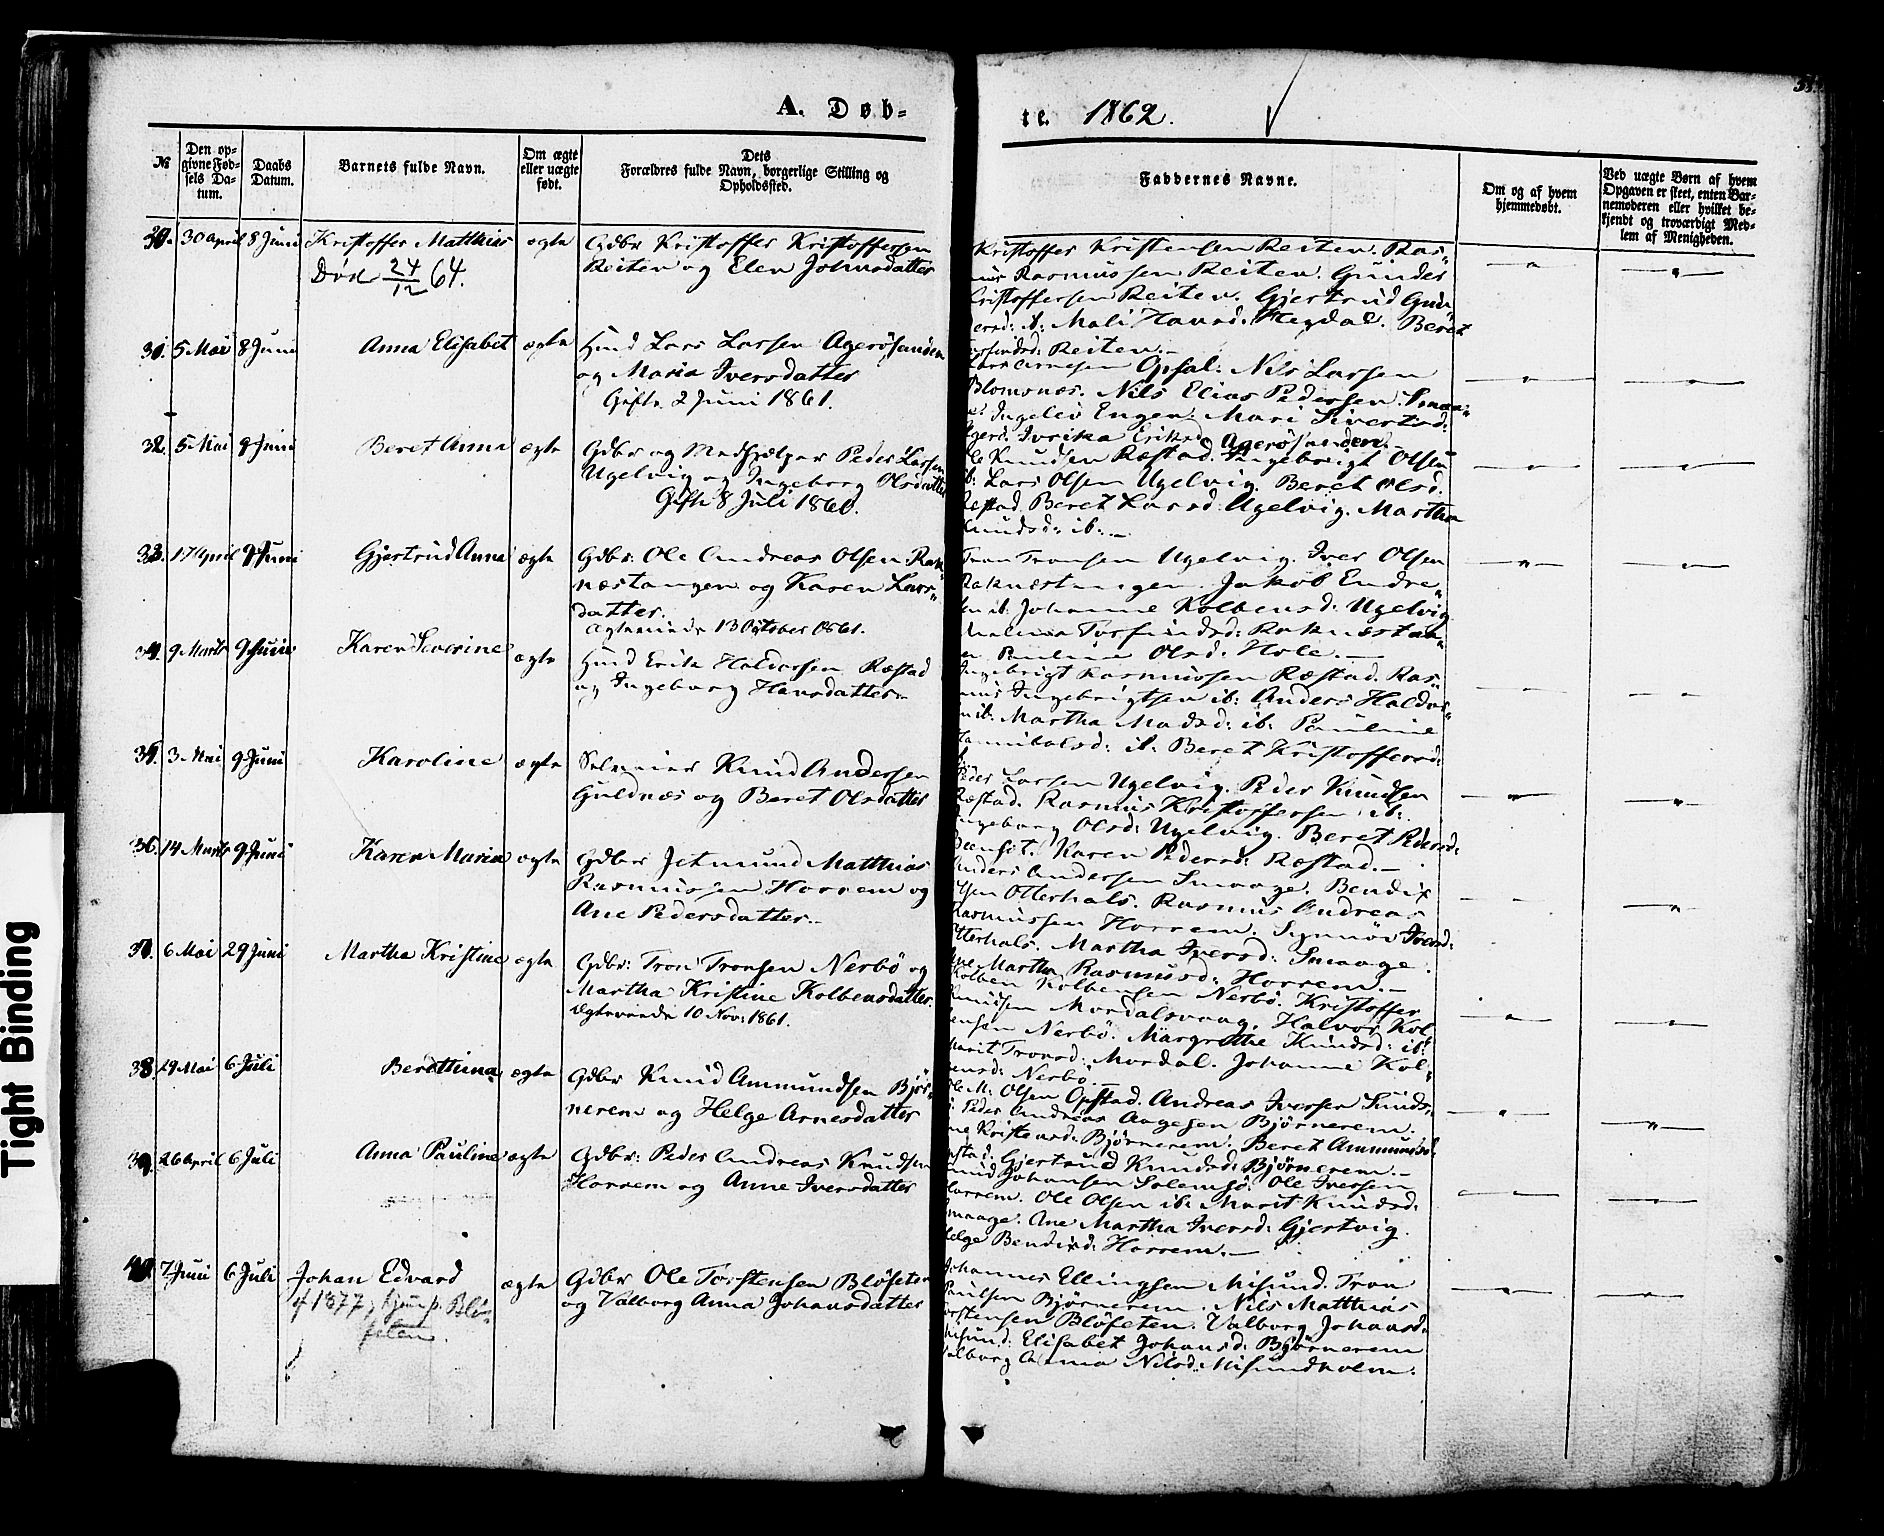 A. Døb-
te. 1862.
№
Den opgivne Fødsels Datum.
Daabs Datum.
Barnets fulde Navn.
Om ægte eller uægte født.
Dets Forældres fulde Navn, borgerlige Stilling og Opholdssted.
Faddernes Navne.
Om og af hvem hjemmedøbt.
Ved uægte Børn af hvem Opgaven er skeet, enten Barnemoderen eller hvilket bekjendt og troværdigt Medlem af Menigheden.
30 April 8 Juni Kristoffer Matthias ægte Gdbr Kristoffer Kristoffersen
Død 24/12 64. Reiten og Elen Johnsdatter
Kristoffer Kristensen Reiten. Ras-
mus Rasmussen Reiten. Gunder
Kristoffersen Reiten. Gjertrud Gun-
d: ib: Mali Hansd: Hegdal. Beret
Reiten.
31. 5 Mai 8 Juni Anna Elisabet ægte Hmd Lars Larsen Agerøsanden
og Maria Iversdatter
Gifte 2 Juni 1861.
Opsal: Nils Larsen
Blomsnæs. Nils Elias Pedersen
Ingelev Engen. Mari Sivertsd:
Eriksd. Agerøsanden.
32. 5 Mai 9 Juni Beret Anna ægte Gdbr og Medhjælper Peder Larsen
Ugelvig og Ingeborg Olsdatter
Gifte 8 Juli 1860.
Knudsen Ræstad. Ingebrigt Olsen
ib: Lars Olsen Ugelvig. Beret Olsd.
Ræstad. Beret Larsd: Ugelvig. Martha
Knudsd: ib:
33. 17 April 9 Juni Gjertrud Anna ægte Gdbr: Ole Andreas Olsen Rak-
næstangen og Karen Lars-
datter.
Ægteviede 13 October 1861.
Tron Tronsen Ugelvig. Iver Olsen
Raknæstangen. Jakob Endre-
sen ib. Johanne Kolbensd: Ugelvig
Torfindsd: Raknæstan-
Pauline Olsd: Hole.
34. 9 Marts 9 Juni Karen Severine ægte Hmd Erik Haldorsen Ræstad
og Ingeborg Hansdatter
Ingebrigt Rasmussen Ræstad. Ras-
mus Ingebrigtsen ib: Anders Haldor-
ib: Martha Madsd: ib: Pauline
Hannibalsd: ib: Beret Kristoffersd:
35. 3 Mai 9 Juni Karoline ægte Selveier Knud Andersen
Guldnæs og Beret Olsdatter
Peder Larsen Ugelvig. Peder Knudsen
Ræstad. Rasmus Kristoffersen ib:
Ingeborg Olsd: Ugelvig. Beret Pedersd:
Karen Pedersd: Ræstad.
36. 14 Marts 9 Juni Karen Maria ægte Gdbr Jetmund Matthias
Rasmussen Horrem og
Ane Pedersdatter.
Anders Andersen Smaage. Bendix
Olsen Otterhals. Rasmus Andreas
Rasmussen Horrem. Synnøv Iversd:
Otterhals. Martha Iversd: Smaage.
Ane Martha Rasmusd: Horrem.
37. 6 Mai 29 Juni Martha Kristine ægte Gdbr: Tron Tronsen Nerbø og
Martha Kristine Kolbensdatter.
Ægteviede 10 Nov: 1861.
Kolben Kolbensen Nerbø. Kristoffer
Knudsen Mordalsvaag. Halvor Kol-
bensen Nerbø. Margrethe Knudsd: ib:
Marit Tronsd: Mordal. Johanne Kol-
bensd: Nerbø.
38. 29 Mai 6 Juli Berethina ægte Gdbr Knud Ammundsen Bjør-
nerem og Helge Arnesdatter
Ole M: Olsen Opstad. Andreas Iversen Sunds-
Peder Andreas Aagesen Bjørnerem.
Kristensd: Bjørnerem. Beret Ammundsd:
Opstad. Gjertrud Knudsd: Bjørnerem.
39. 26 April 6 Juli Anna Pauline ægte Gdbr: Peder Andreas Knudsen
Horrem og Anne Iversdatter
Knud Johansen Solemsø. Ole Iversen
Horrem. Ole Olsen ib: Marit Knudsd:
Smaage. Ane Martha Iversd: Gjertvig.
Helge Bendixd: Horrem.
40. 7 Juni 6 Juli Johan Edvard ægte Gdbr Ole Torstensen Bløseten
og Valborg Anna Johansdatter
1877, hjem p. Blø-
seten.
Johannes Ellingsen Misund. Tron
Paulsen Bjørnerem. Nils Matthias
Torstensen Bløseten. Valborg Johansd:
Misund. Elisabet Johansd: Bjørnerem
Valborg Anna Nilsd: Misundholm.
Tight Binding